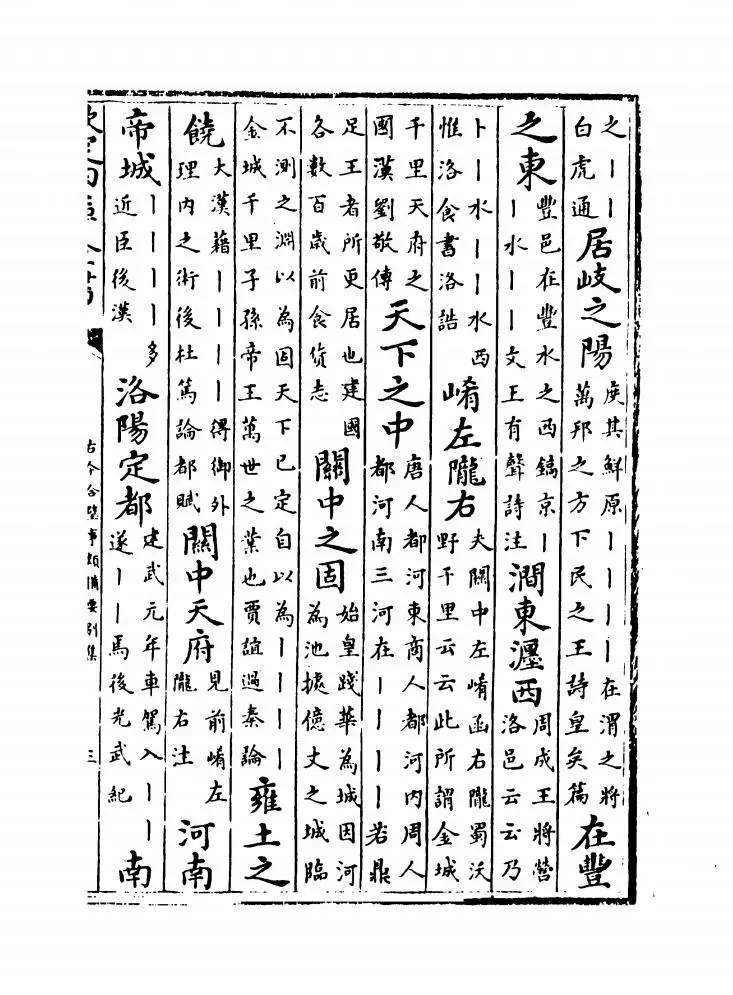 之丨丨白虎通居岐之陽度其鮮原丨丨丨丨在渭之將萬邦之方下民之王詩皇矣篇在豐
之東豐邑在豐水之西鎬京丨丨水丨丨文王有聲詩注澗東瀍西周成王將營洛邑云云乃
卜丨水丨丨水西惟洛食書洛誥崤左隴右夫關中左崤函右隴蜀沃野千里云云此所謂金城
千里天府之國漢劉敬傳天下之中唐人都河東商人都河内周人都河南三河在丨丨丨丨若鼎
足王者所更居也建國各數百歲前食貨志關中之固始皇踐華為城因河為池據億丈之城臨
不測之淵以為固天下已定自以為丨丨丨丨金城千里子孫帝王萬世之業也賈誼過秦論雍土之
饒大漢藉丨丨丨丨得御外理内之術後杜篤論都賦關中天府見前崤左隴右注河南
帝城丨丨丨丨多近臣後漢洛陽定都建武元年車駕入丨丨遂丨丨焉後光武紀南
古今合璧事類備要別集 三